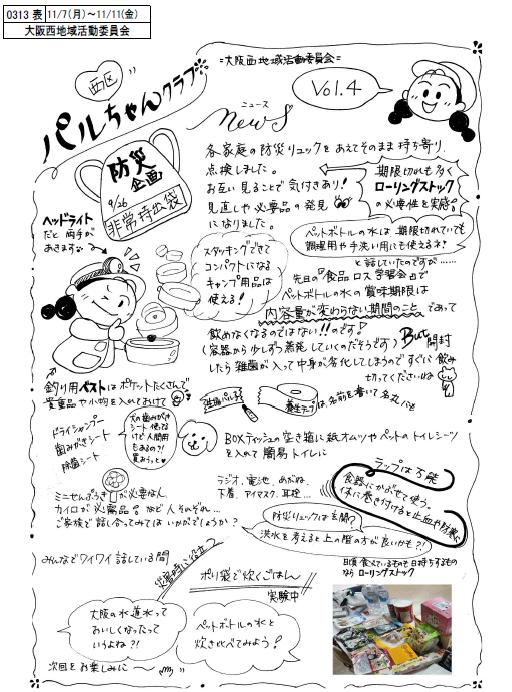 0313 表 11/7(月)～11/11(金)
大阪西地域活動委員会
=大阪西地域活動委員会=
西区
パルちゃんクラブ
ニュース
News
Vol.4
防災
企画
9/26
非常持出袋
各家庭の防災リュックをあえてそのまま持ち寄り、
点検しました。
お互い見ることで気付きあり!
見直しや必要品の発見
になりました。
期限切れも多く
ローリングストック
の必要性を実感。
ヘッドライト
だと両手が
あきますな
スタッキングできて
コンパクトになる
キャンプ用品は
使える!
ペットボトルの水は期限切れていても
調理用や手洗い用にも使えるネ!
と話していたのですが……
先日の『食品ロス学習会』で
ペットボトルの水の賞味期限は
内容量が変わらない期間のこと であって
飲めなくなるのではない!!のです♪
(容器から少しずつ蒸発していくのだそうです) But 開封
したら雑菌が入って中身が劣化してしまうのですぐに飲み
切ってくださいね
釣り用ベストはポケットたくさんで
貴重品や小物を入れておけて
養生テープは名前を書いて名札にも
ドライシャンプー
歯みがきシート
除菌シート
犬の歯みがき
シート使ってる
けど人間用
もあるの?!
買おうっと
BOXティッシュの空き箱に紙オムツやペットのトイレシーツ
を入れて簡易トイレに
ミニせんぷうきが必要な人、
カイロが必需品など人それぞれ…
ご家族で話し合ってみてはいかがでしょうか?
ラジオ、電池、めがね、
下着、アイマスク、耳栓…
ラップは万能
食器にかぶせて使う。
体に巻き付けると止血や防寒に
防災リュックは玄関?
洪水を考えると上の階の方が良いかも?!
日頃食べているものも日持ちするもの
なら ローリングストック
みんなでワイワイ話している間
災害時に役立つ
ポリ袋で炊くごはん
実験中
大阪の水道水って
おいしくなったって
いうよね?!
ペットボトルの水と
炊き比べてみよう!
次回をお楽しみに